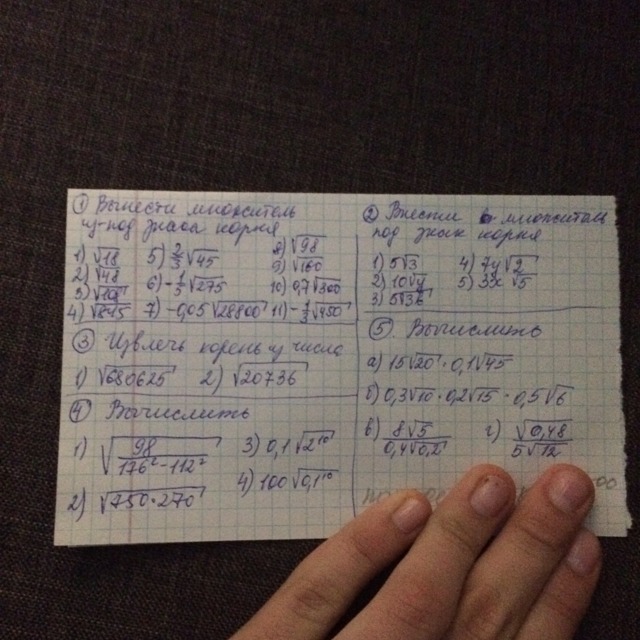 ① Вынести множитель
из-под знака корня
1) √18 5) 2/3√45 8) √98
2) √48 6) -1/5√275 9) √160
10) 0,7√300
4) √845 7) -0,05√28800
② Внести множитель
под знак корня
1) 5√3 4) 7y√2
2) 10√y 5) 3x√5
3) 5√3b
③ Извлечь корень из числа
1) √680625 2) √20736
④ Вычислить
1) √(98/(176²-112²)) 3) 0,1√2¹⁰
2) √(750·270) 4) 100√0,1¹⁰
⑤ Вычислить
а) 15√20 · 0,1√45
б) 0,3√10 · 0,2√15 · 0,5√6
в) 8√5/0,4√0,2 г) √0,48/5√12